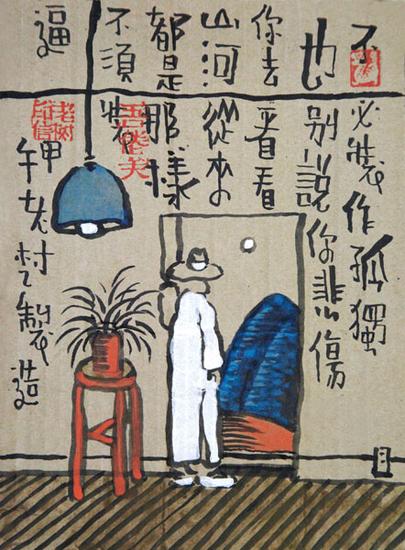 不必裝作孤獨
也別說你悲傷
你去看看
山河從來
都是那樣
不須裝
逼
甲午老树製造
老树印信